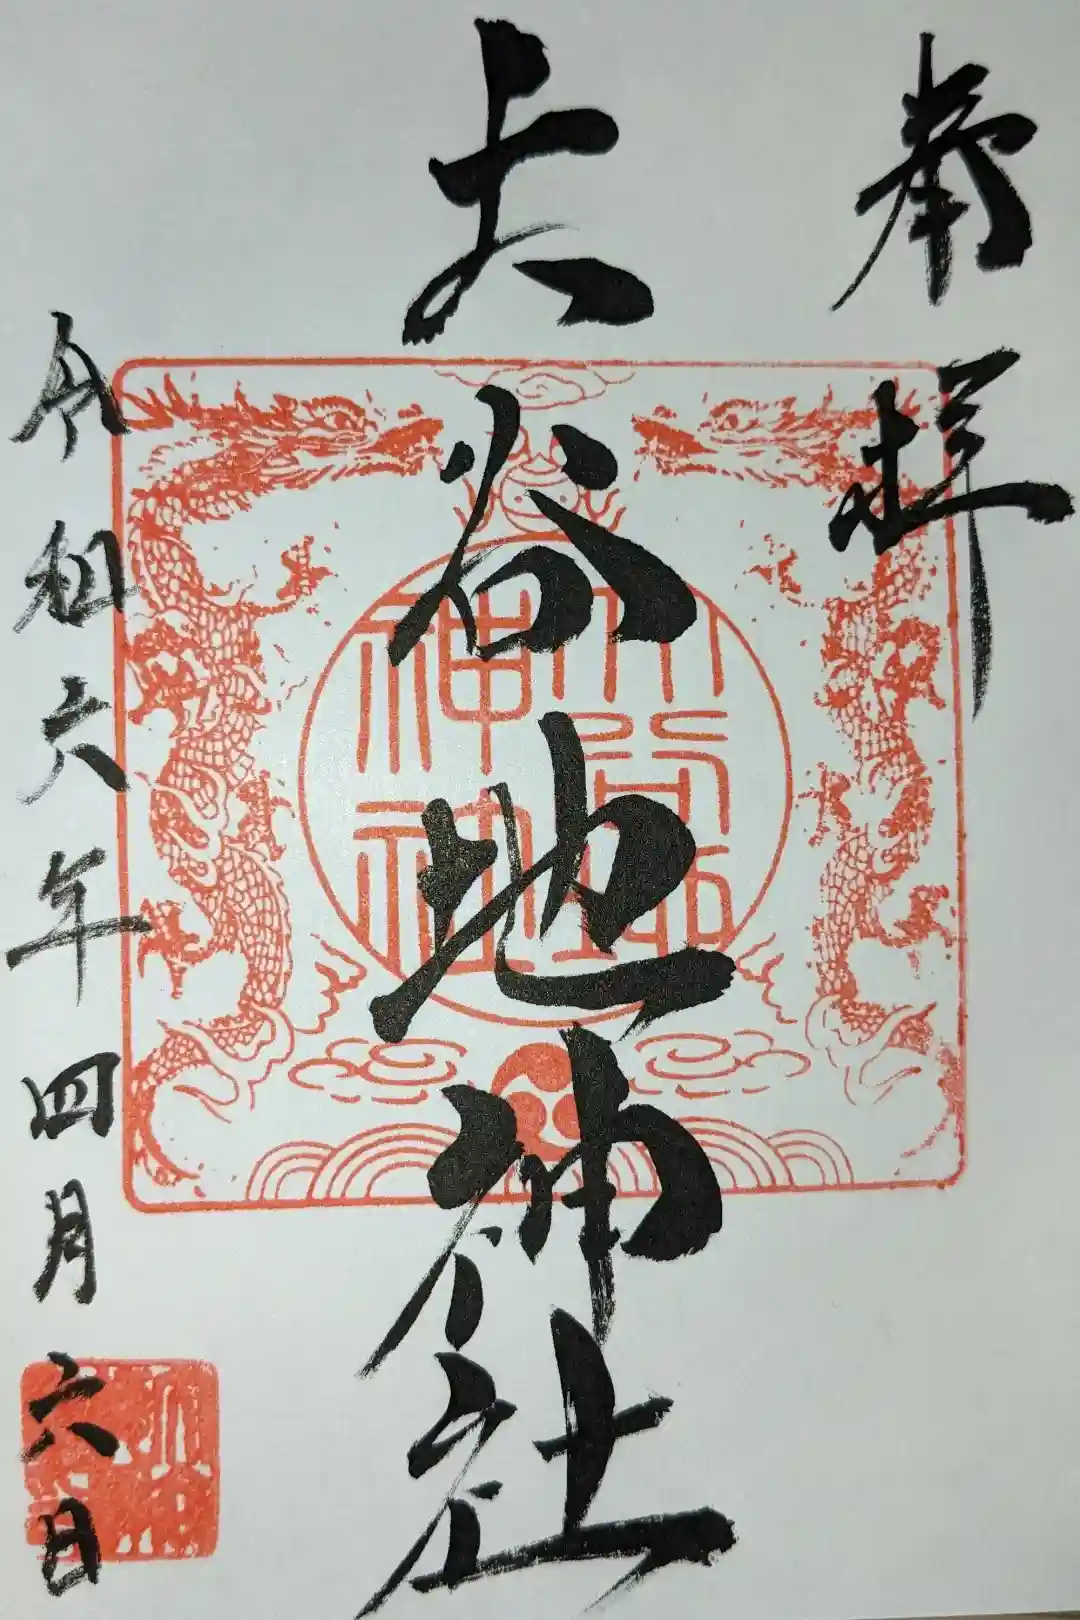 奉拝
大谷地神社
大谷地神社
令和六年四月六日